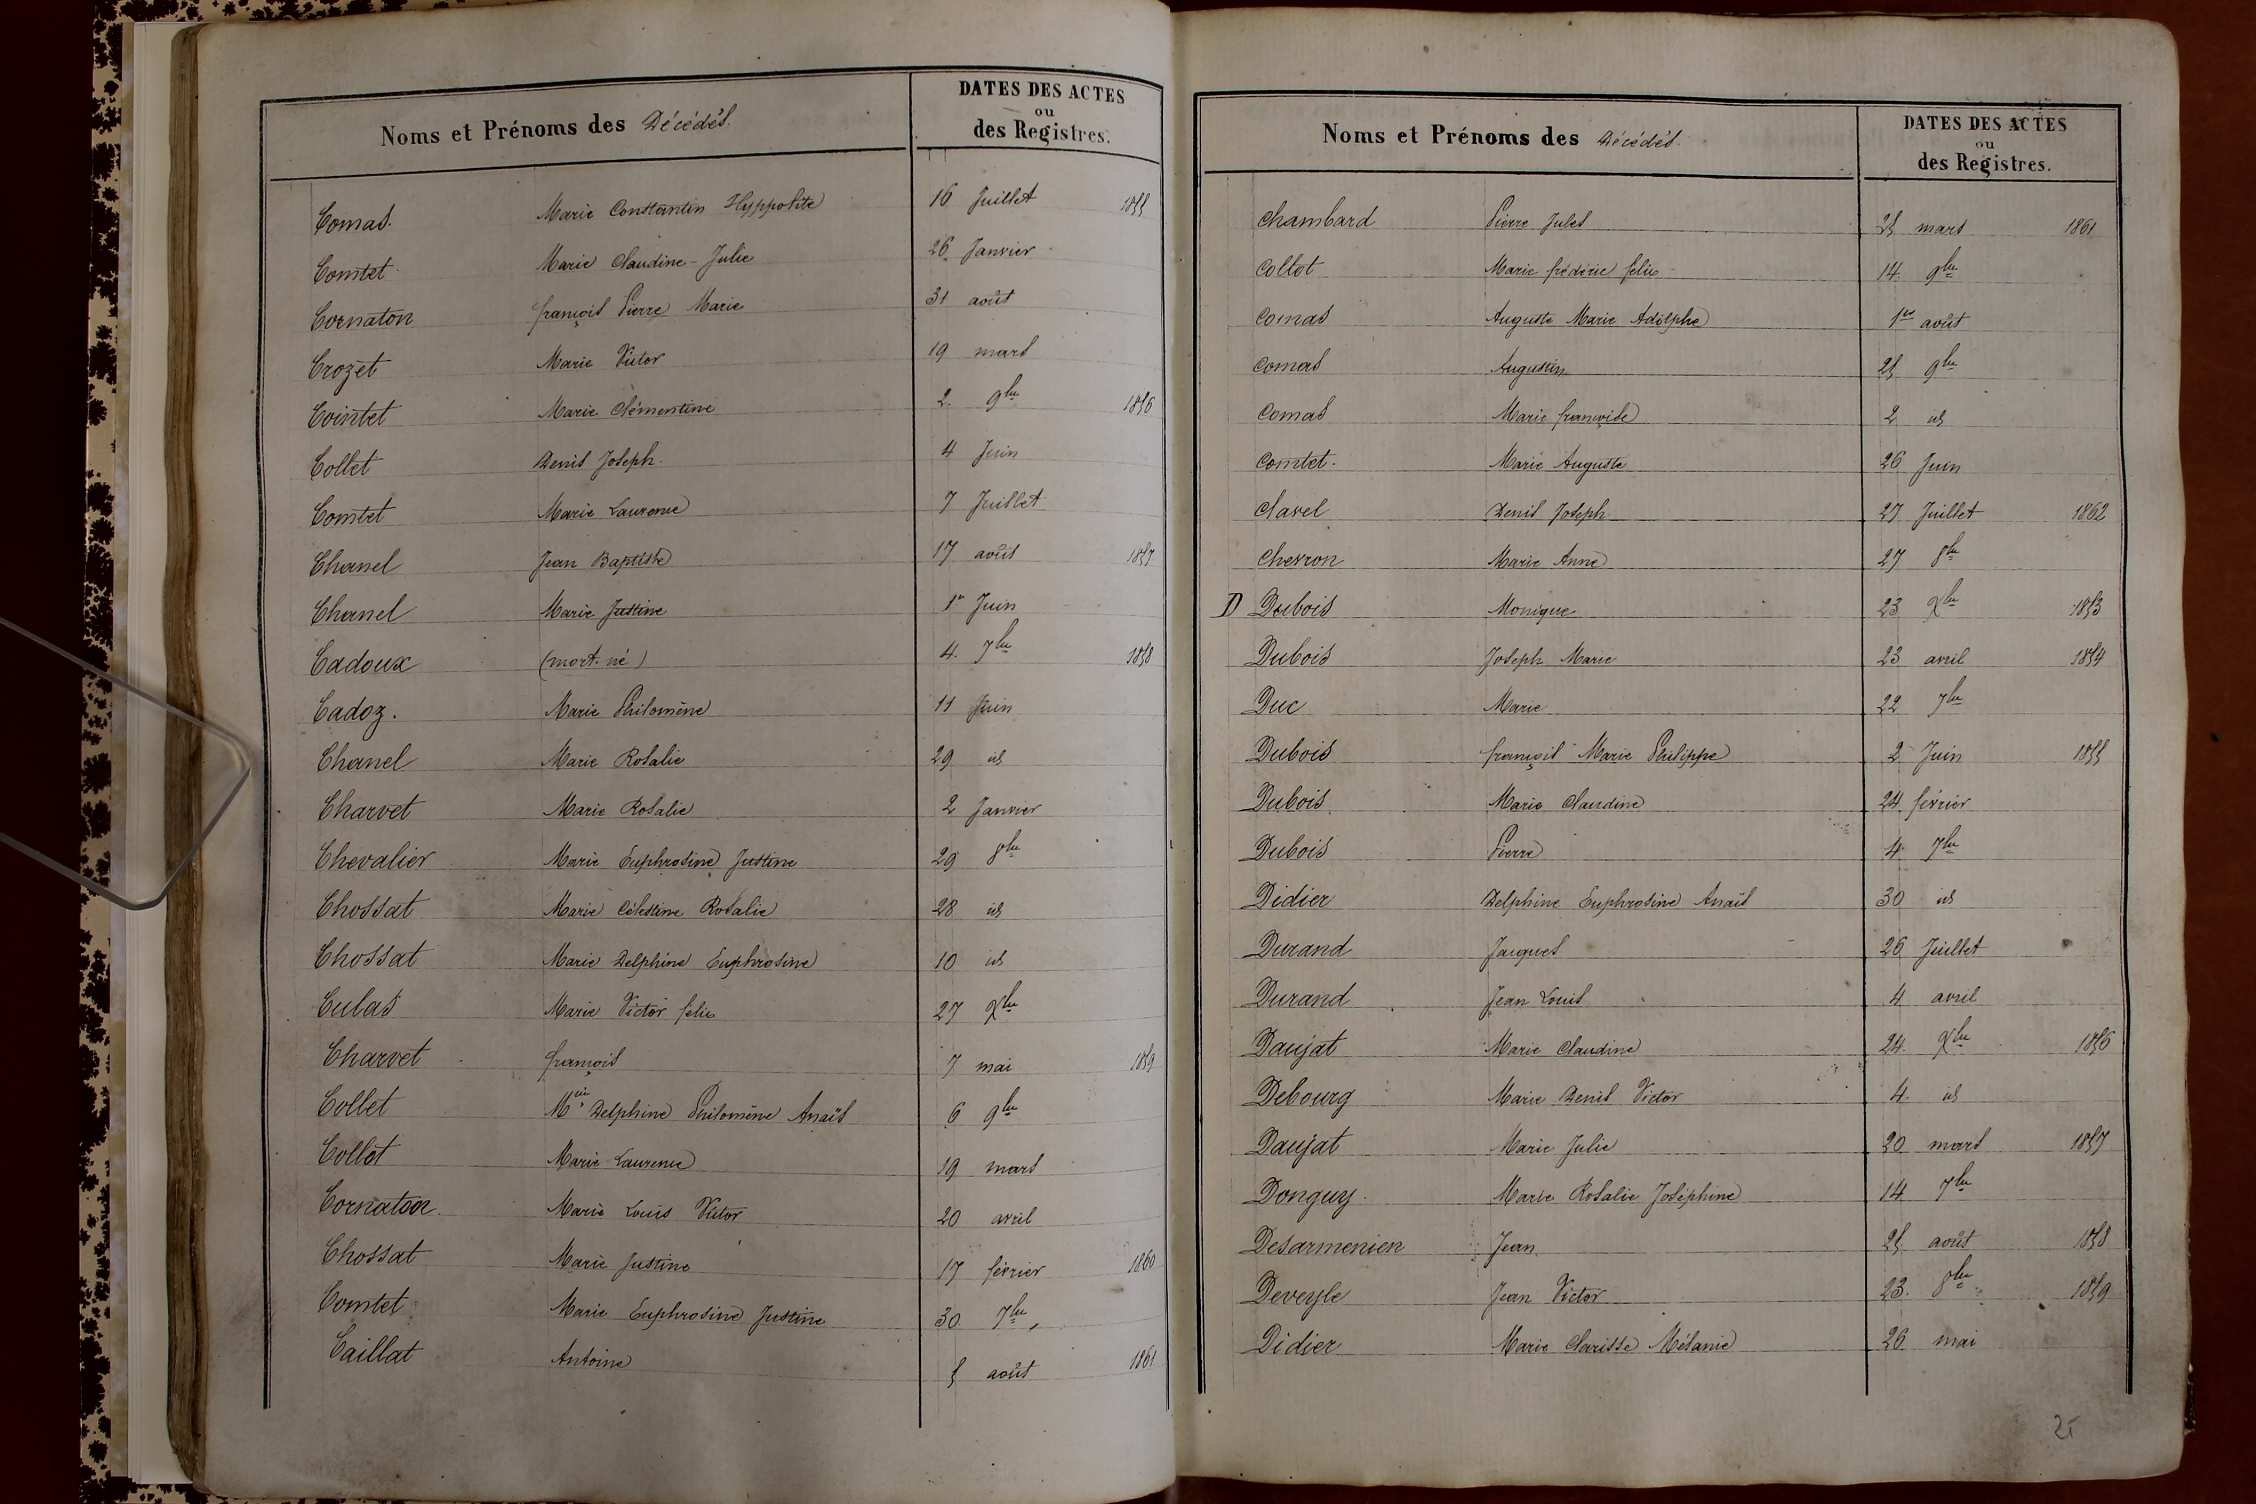 Noms et Prénoms des Décédés.
DATES DES ACTES
ou
des Registres.
Comas. Marie Constantin Hyppolite 16 Juillet 1855
Comtet Marie Claudine-Julie 26 Janvier
Cornaton françois Pierre Marie 31 août
Crozet Marie Victor 19 mars
Cointet Marie Clémentine 2 9bre 1856
Collet Denis Joseph 4 Juin
Comtet Marie Laurence 7 Juillet
Chanel Jean Baptiste 17 août 1857
Chanel Marie Justine 1er Juin
Cadoux (mort-né) 4 7bre 1858
Cadoz. Marie Philomène 11 Juin
Chanel Marie Rosalie 29 id
Charvet Marie Rosalie 2 Janvier
Chevalier Marie Euphrosine Justine 29 8bre
Chossat Marie Célestine Rosalie 28 id
Chossat Marie Delphine Euphrosine 10 id
Culas Marie Victor felix 27 Xbre
Charvet françois 7 mai 1859
Collet Mie Delphine Philomène Anaïs 6 9bre
Collot Marie-Laurence 19 mars
Cornaton Marie Louis Victor 20 avril
Chossat Marie Justine 17 février 1860
Comtet Marie Euphrosine Justine 30 7bre
Caillat Antoine 5 août 1861
Noms et Prénoms des Décédés.
DATES DES ACTES
ou
des Registres.
Chambard Pierre Jules 25 mars 1861
Collot Marie frédéric felix 14 9bre
Comas Auguste Marie Adolphe 1er août
Comas Augustin 25 9bre
Comas Marie françoise 2 id
Comtet. Marie Auguste 26 Juin
Clavel Denis Joseph 27 Juillet 1862
Chevron Marie Anne 27 8bre
D Dubois Monique 23 Xbre 1853
Dubois Joseph Marie 23 avril 1854
Duc Marie 22 7bre
Dubois françois Marie Philippe 2 Juin 1855
Dubois Marie Claudine 24 février
Dubois Pierre 4 7bre
Didier Delphine Euphrosine Anaïs 30 id
Durand Jacques 26 Juillet
Durand Jean Louis 4 avril
Daujat Marie Claudine 24 Xbre 1856
Debourg Marie Denis Victor 4 id
Daujat Marie Julie 20 mars 1857
Donguy Marie Rosalie Joséphine 14 7bre
Desarmenien Jean 25 août 1858
Deveyle Jean Victor 23 8bre 1859
Didier Marie Clarisse Mélanie 26 mai